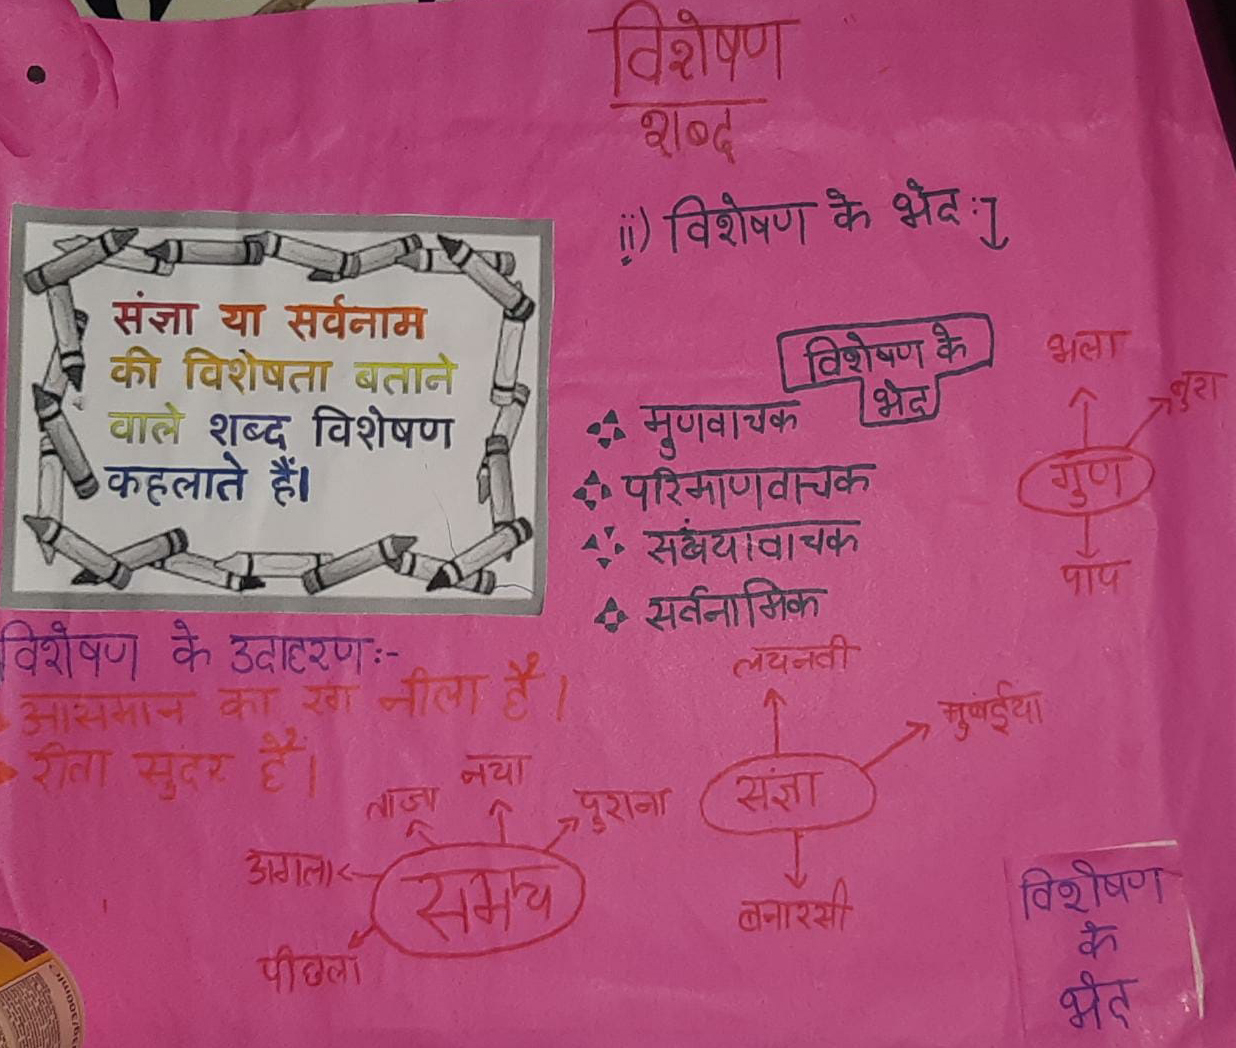 विशेषण
शब्द
ii) विशेषण के भेद :-
संज्ञा या सर्वनाम
की विशेषता बताने
वाले शब्द विशेषण
कहलाते हैं।
विशेषण के
भेद
मुणवाचक
परिमाणवाचक
संख्यावाचक
सर्तनामिक
भला
बुरा
गुण
पाप
विशेषण के उदाहरण:-
आसमान का रंग नीला है।
रीता सुंदर हैं।
ताजा
नया
पुराना
अगला
समय
पीछला
लखनवी
मुंबईया
संज्ञा
बनारसी
विशेषण
के
भेद